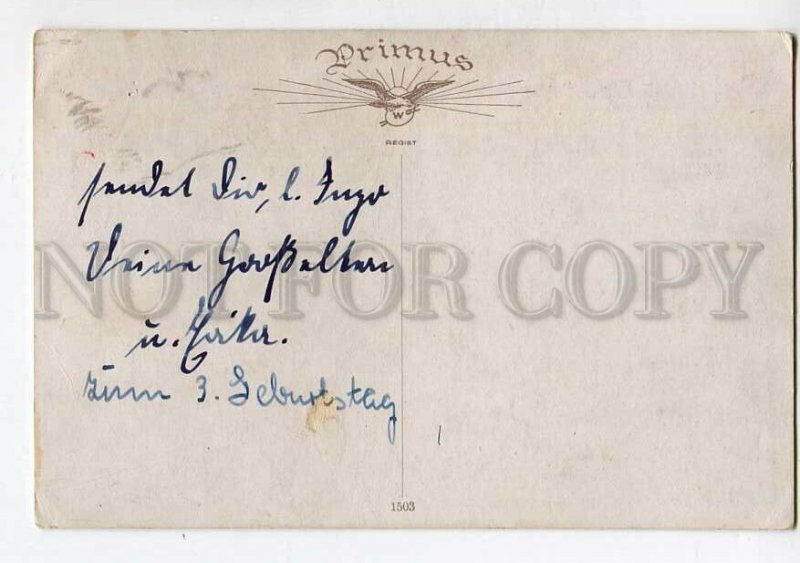 Primus
W
REGIST
sendet Dir, l. Ingo
Deine Großeltern
u. Erika.
zum 3. Geburtstag
1503
NOT FOR COPY